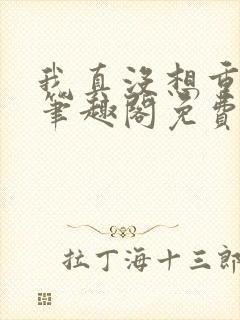 我真没想重
笔趣阁免费
拉丁海十三郎